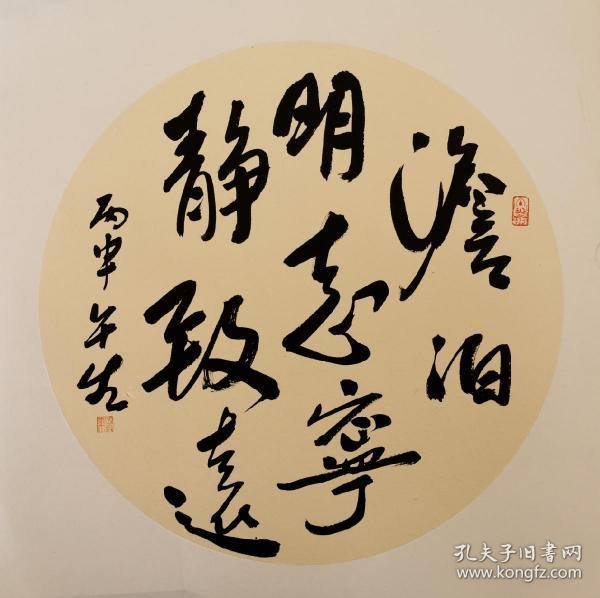 澹泊
明志寧
靜致遠
丙申 午生
孔夫子旧书网
www.kongfz.com